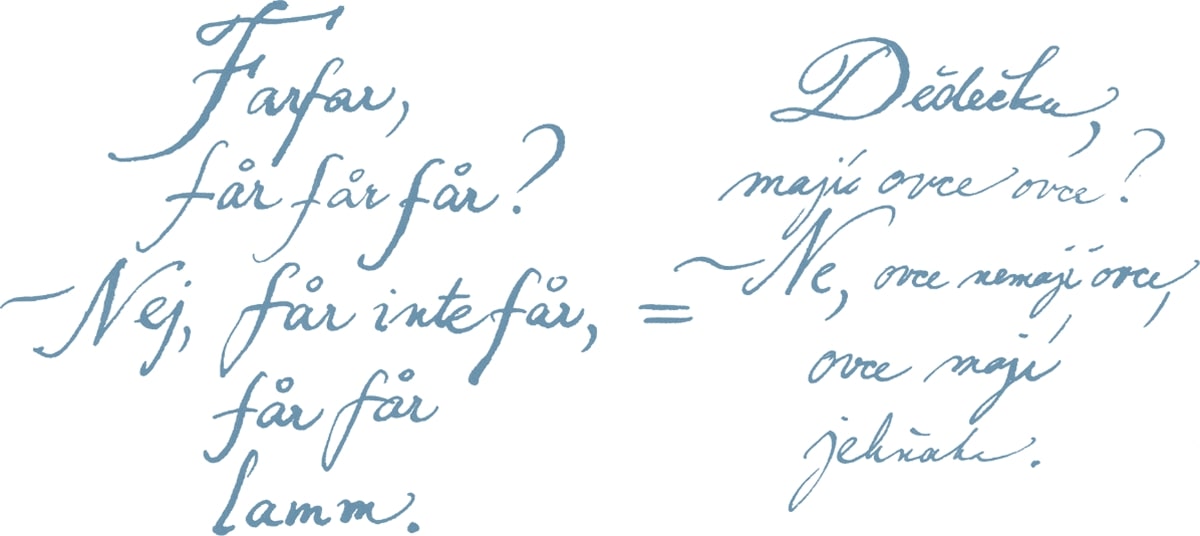 Farfar,
får får får?
~Nej, får inte får,
får får
lamm.
=
Dědečku,
mají ovce ovce?
~Ne, ovce nemají ovce,
ovce mají
jehňata.